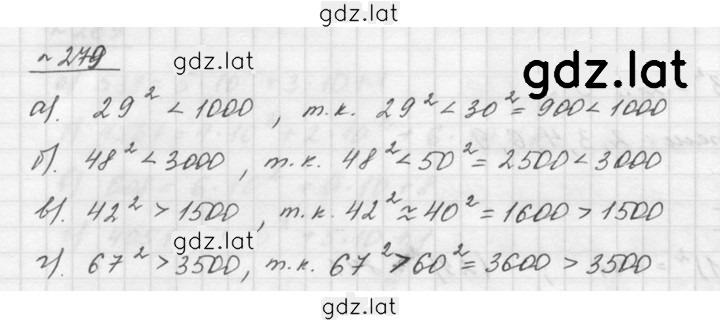 gdz.lat
№ 279
gdz.lat
gdz.lat
а). 29² < 1000, т.к. 29² < 30² = 900 < 1000
б). 48² < 3000, т.к. 48² < 50² = 2500 < 3000
в). 42² > 1500, т.к. 42² ≈ 40² = 1600 > 1500
gdz.lat
gdz.lat
г). 67² > 3500, т.к. 67² > 60² = 3600 > 3500
gdz.lat